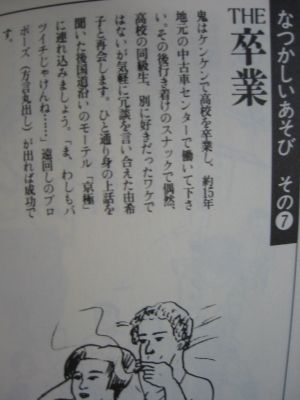 なつかしいあそび その❼
THE 卒業
鬼はケンケンで高校を卒業し、約15年
地元の中古車センターで働いて下さ
い。その後行き着けのスナックで偶然、
高校の同級生、別に好きだったワケで
はないが気軽に冗談を言い合えた由希
子と再会します。ひと通り身の上話を
聞いた後国道沿いのモーテル「京極」
に連れ込みましょう。「ま、わしもバ
ツイチじゃけんね……」遠回しのプロ
ポーズ(方言丸出し)が出れば成功で
す。